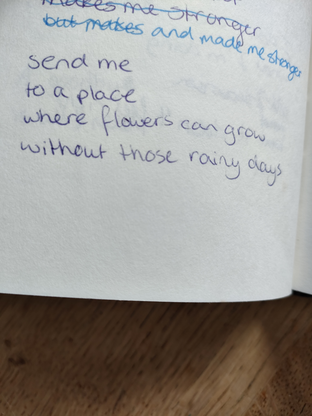 makes me stronger
but makes and made me stronger
send me
to a place
where flowers can grow
without those rainy days